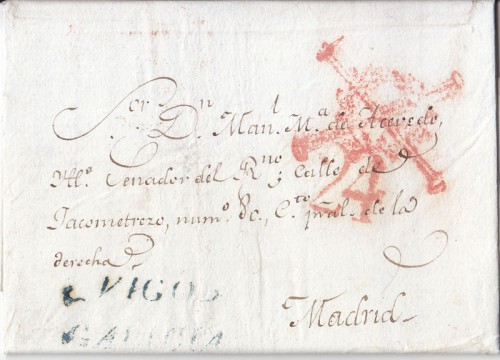 Sor. Dn. Manl. Ma. de Acevedo,
Illo. Cenador del Rno. Calle de
Jacometrezo, numo. 8c., Cto. pral. de la
derecha
Madrid
24
VIGO
GALICIA